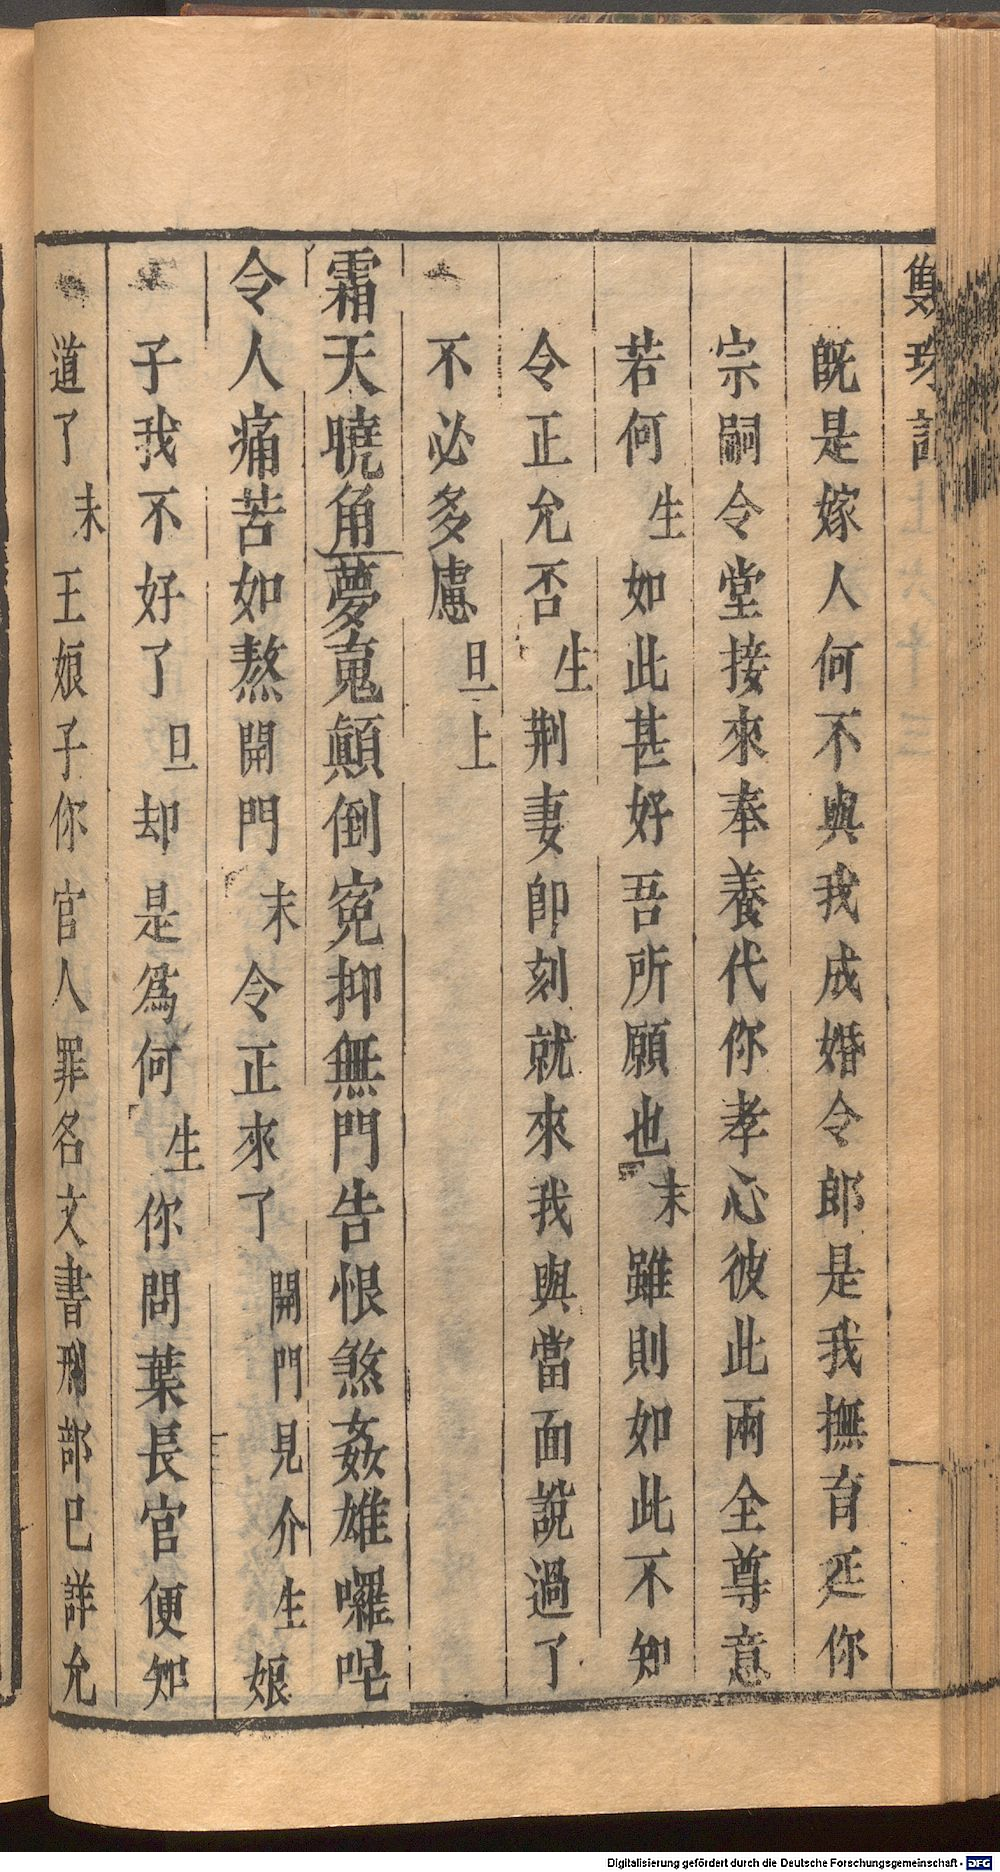 雙珠記
旣是嫁人何不與我成婚令郎是我撫育延你
宗嗣令堂接來奉養代你孝心彼此兩全尊意
若何生如此甚好吾所願也末雖則如此不知
令正允否生荆妻卽刻就來我與當面說過了
不必多慮旦上
霜天曉角夢䰟顚倒寃抑無門告恨煞姦雄囉唣
令人痛苦如熬開門末令正來了開門見介生娘
子我不好了旦却是爲何生你問葉長官便知
道了末王娘子你官人罪名文書刑部已詳允
Digitalisierung gefördert durch die Deutsche Forschungsgemeinschaft - DFG